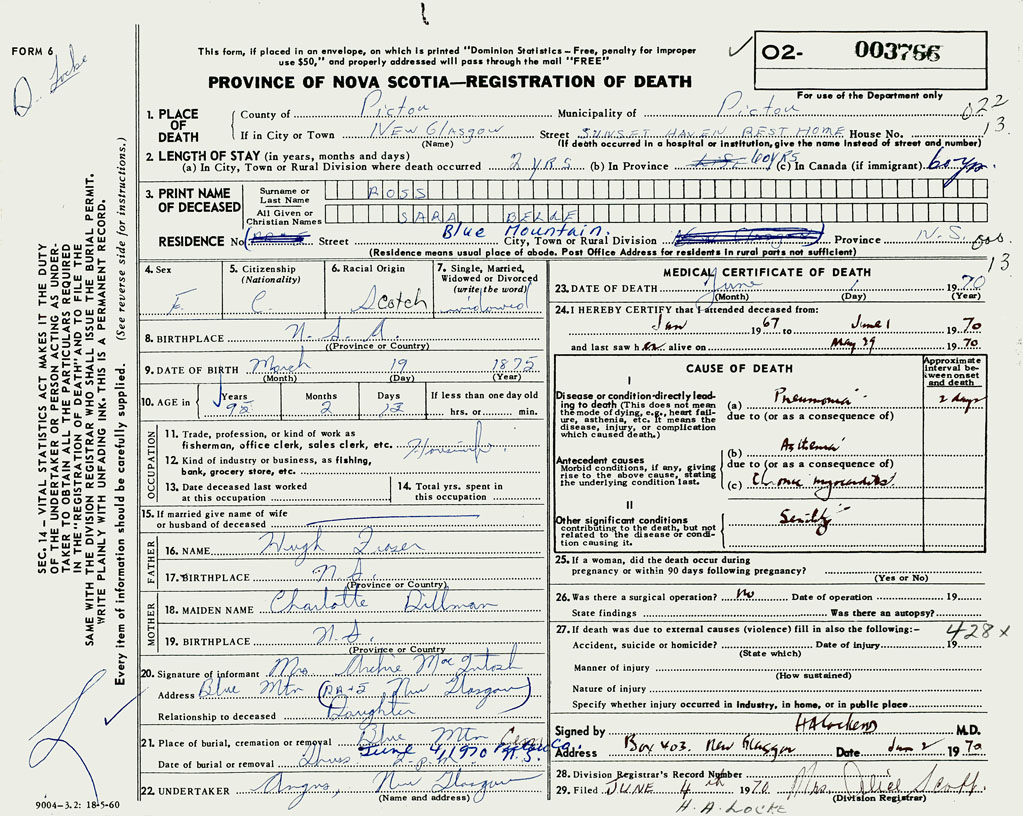 FORM 6
D. Locke
This form, if placed in an envelope, on which is printed "Dominion Statistics – Free, penalty for improper
use $50," and properly addressed will pass through the mail "FREE"
✓ O2- 003766
For use of the Department only
PROVINCE OF NOVA SCOTIA—REGISTRATION OF DEATH
022
13.
1. PLACE OF DEATH
County of Pictou Municipality of Pictou
If in City or Town NEW GLASGOW Street SUNSET HAVEN REST HOME House No.
(Name) (If death occurred in a hospital or institution, give the name instead of street and number)
2. LENGTH OF STAY (in years, months and days)
(a) In City, Town or Rural Division where death occurred 2 YRS (b) In Province 60YRS (c) In Canada (if immigrant) 60 yrs
3. PRINT NAME OF DECEASED
Surname or Last Name ROSS
All Given or Christian Names SARA BELLE
RESIDENCE No. Street Blue Mountain. City, Town or Rural Division Province N.S.
(Residence means usual place of abode. Post Office Address for residents in rural parts not sufficient)
13
4. Sex
F.
5. Citizenship
(Nationality)
C.
6. Racial Origin
Scotch
7. Single, Married,
Widowed or Divorced
(write the word)
widowed
8. BIRTHPLACE N.S.A.
(Province or Country)
9. DATE OF BIRTH March 19 1875
(Month) (Day) (Year)
10. AGE in Years 95 Months 2 Days 12 If less than one day old
hrs. or min.
OCCUPATION
11. Trade, profession, or kind of work as
fisherman, office clerk, sales clerk, etc.
12. Kind of industry or business, as fishing,
bank, grocery store, etc.
13. Date deceased last worked
at this occupation
14. Total yrs. spent in
this occupation
15. If married give name of wife
or husband of deceased
FATHER
16. NAME Hugh Fraser
17. BIRTHPLACE N.S.
(Province or Country)
MOTHER
18. MAIDEN NAME Charlotte Dillman
19. BIRTHPLACE N.S.
(Province or Country)
20. Signature of informant Mrs Archie MacIntosh
Address Blue Mtn (RR-5 New Glasgow)
Relationship to deceased Daughter
21. Place of burial, cremation or removal Blue Mtn Cem
Date of burial or removal June 4, 1970 N.S.
22. UNDERTAKER Angus, New Glasgow
(Name and address)
MEDICAL CERTIFICATE OF DEATH
23. DATE OF DEATH June 1 1970
(Month) (Day) (Year)
24. I HEREBY CERTIFY that I attended deceased from:
Jan 1967 to June 1 1970
and last saw her alive on May 29 1970
CAUSE OF DEATH
Approximate interval between onset and death
I
Disease or condition directly leading to death (This does not mean the mode of dying, e.g., heart failure, asthenia, etc. It means the disease, injury, or complication which caused death.)
(a) Pneumonia 2 days
due to (or as a consequence of)
Antecedent causes
Morbid conditions, if any, giving rise to the above cause, stating the underlying condition last.
(b) Asthenia
due to (or as a consequence of)
(c) Chronic myocarditis
II
Other significant conditions
contributing to the death, but not related to the disease or condition causing it.
Senility
25. If a woman, did the death occur during
pregnancy or within 90 days following pregnancy?
(Yes or No)
26. Was there a surgical operation? No Date of operation 19
State findings Was there an autopsy?
27. If death was due to external causes (violence) fill in also the following:– 428x
Accident, suicide or homicide? Date of injury 19
(State which)
Manner of injury
(How sustained)
Nature of injury
Specify whether injury occurred in industry, in home, or in public place
Signed by M.D.
Address Box 403. New Glasgow Date June 2 1970
28. Division Registrar's Record Number
29. Filed JUNE 4th 1970 Mrs. Alice Scott
(Division Registrar)
H. A. LOCKE
SEC. 14 – VITAL STATISTICS ACT MAKES IT THE DUTY
OF THE UNDERTAKER OR PERSON ACTING AS UNDER-
TAKER TO OBTAIN ALL THE PARTICULARS REQUIRED
IN THE "REGISTRATION OF DEATH" AND TO FILE THE
SAME WITH THE DIVISION REGISTRAR WHO SHALL ISSUE THE BURIAL PERMIT.
WRITE PLAINLY WITH UNFADING INK. THIS IS A PERMANENT RECORD.
Every item of information should be carefully supplied. (See reverse side for instructions.)
9004–3.2: 18-5-60